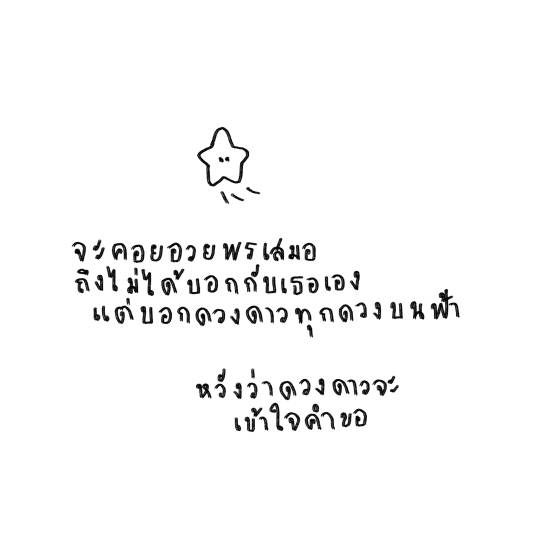 จะคอยอวยพรเสมอ
ถึงไม่ได้บอกกับเธอเอง
แต่บอกดวงดาวทุกดวงบนฟ้า
หวังว่าดวงดาวจะ
เข้าใจคำขอ